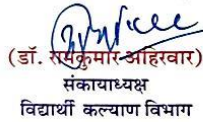 (डॉ. रामकुमार अहिरवार)
संकायाध्यक्ष
विद्यार्थी कल्याण विभाग